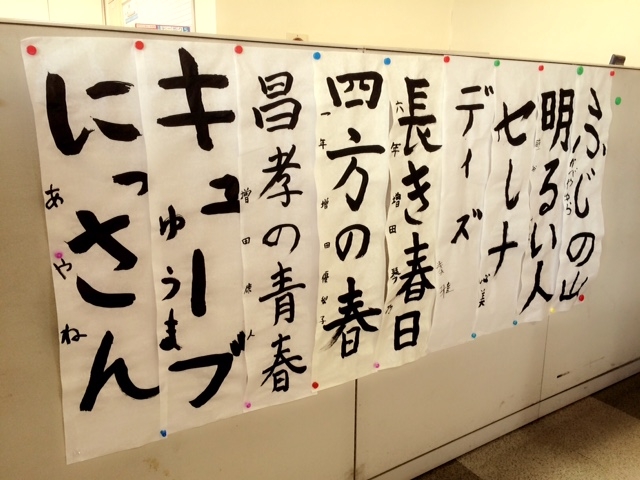 ふじの山
かがやから
明るい人
セレナ
心美
デイズ
長き春日
六年 増田琴乃
四方の春
一年 増田優梨子
昌孝の青春
増田康人
キューブ
ゆうま
にっさん
あやね